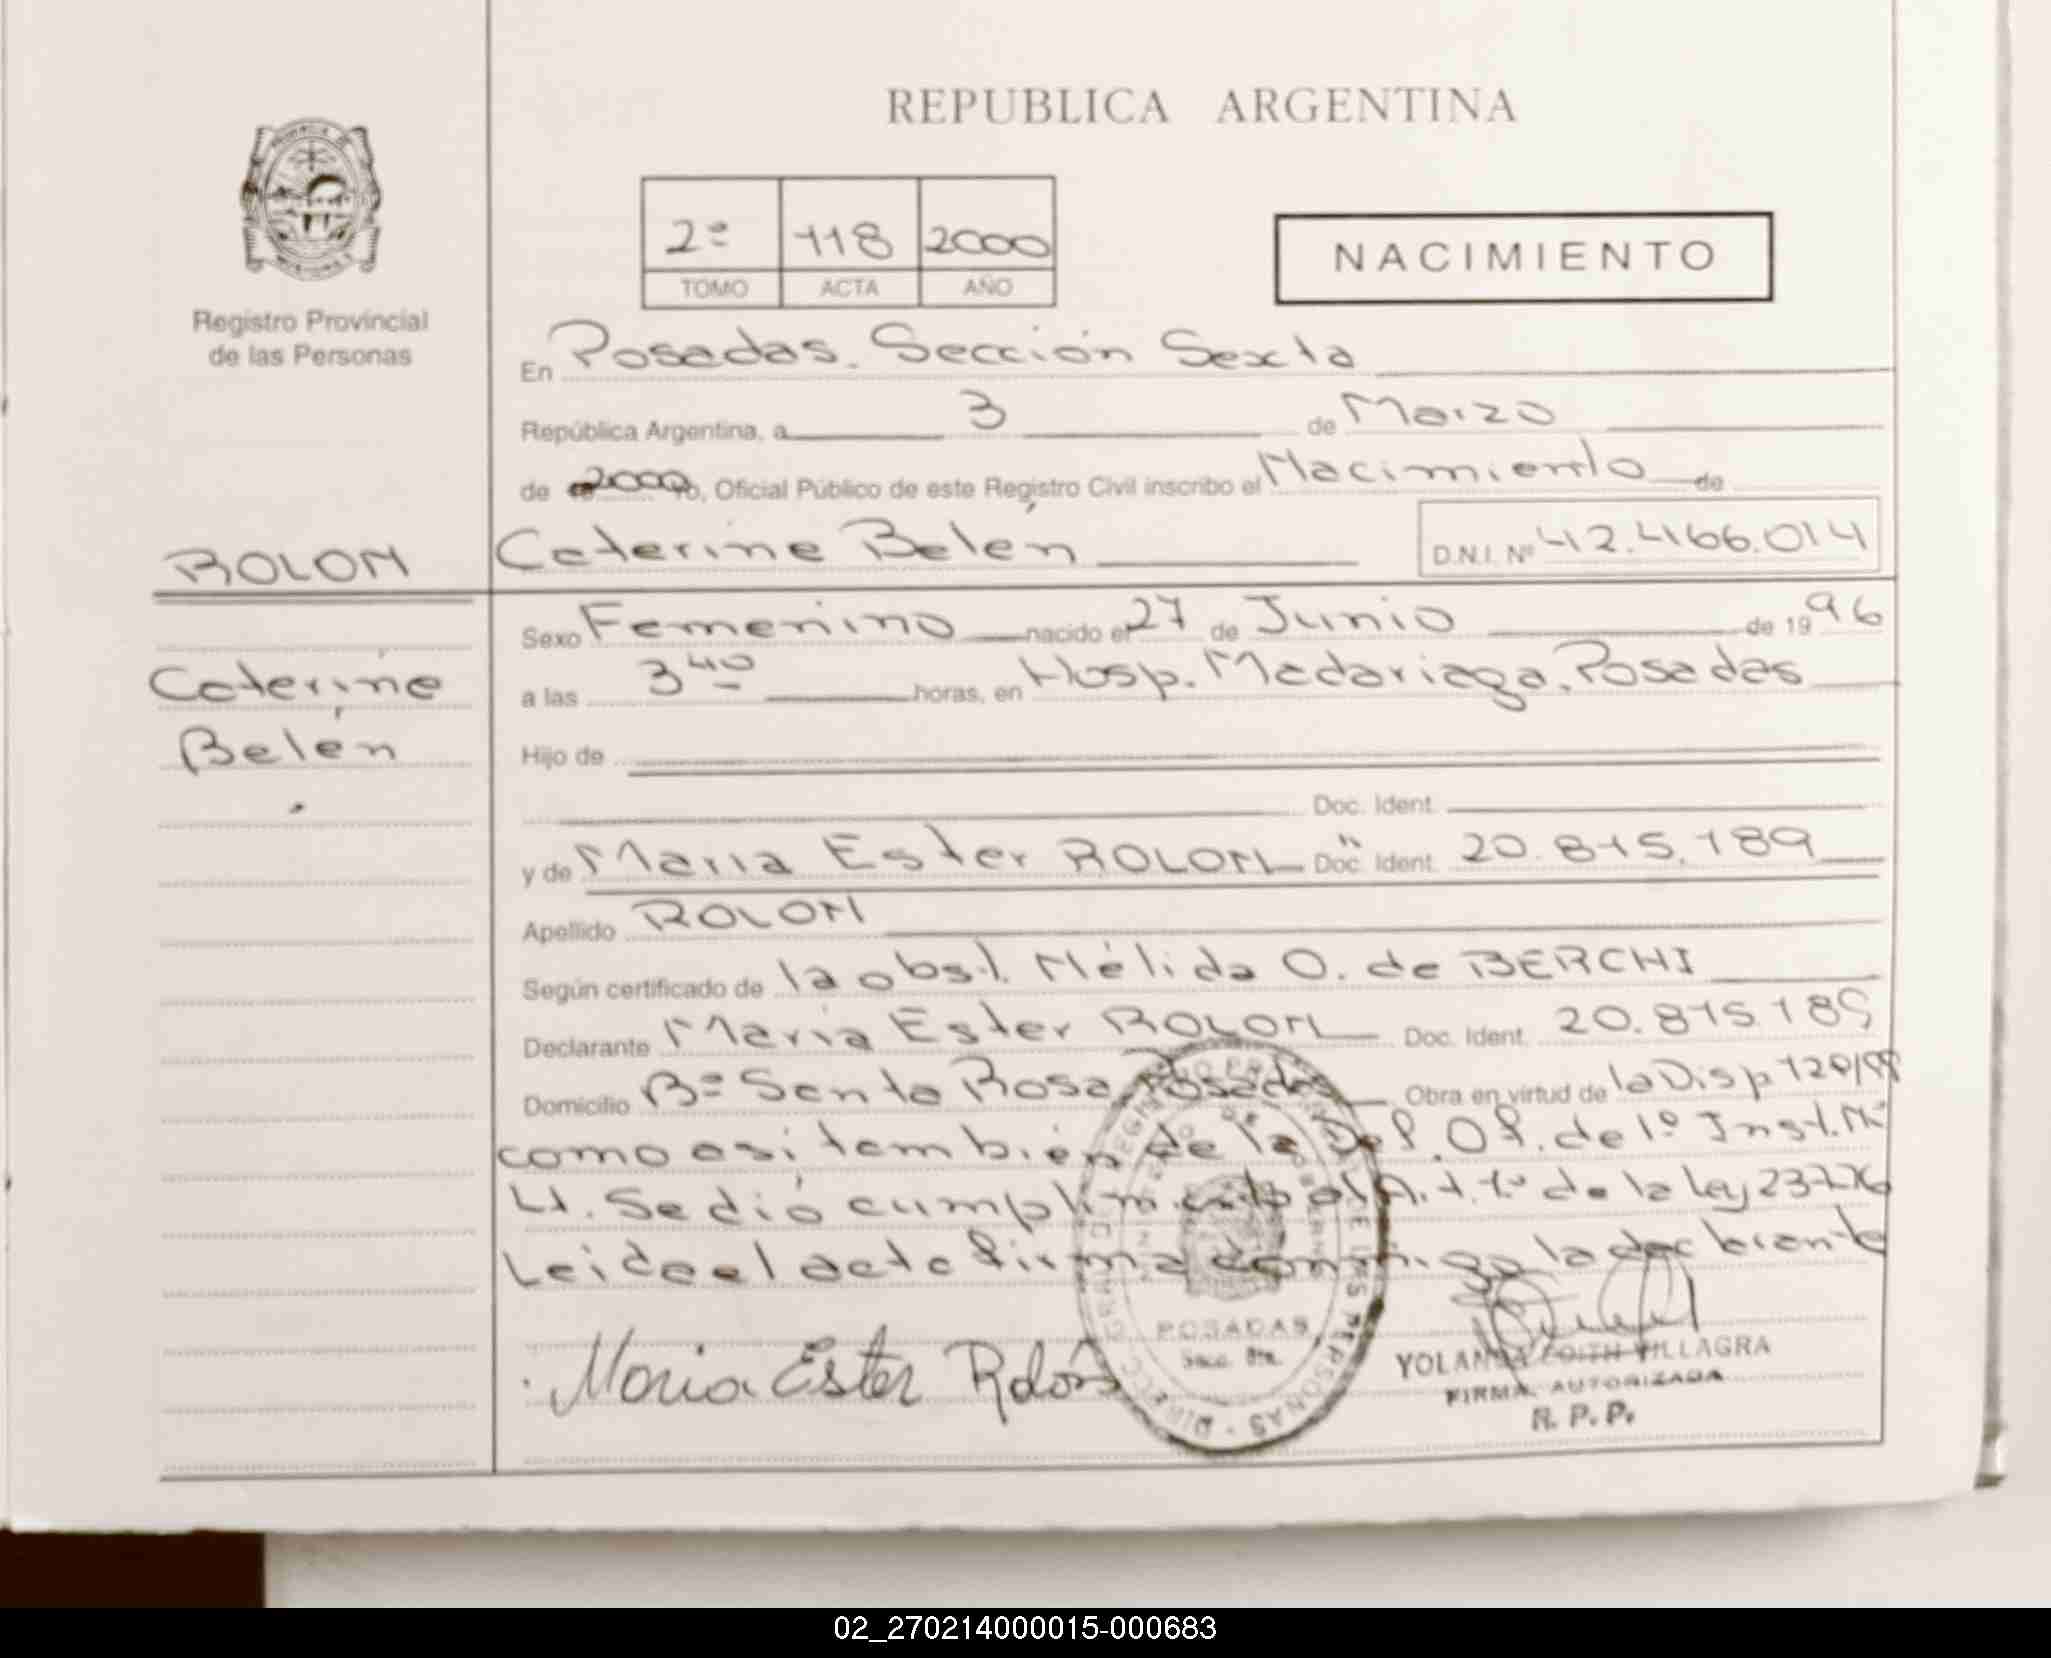 REPUBLICA ARGENTINA
2º 118 2000
TOMO ACTA AÑO
NACIMIENTO
Registro Provincial
de las Personas
En Posadas. Sección Sexta
República Argentina, a 3 de Marzo
de 2000 Yo, Oficial Público de este Registro Civil inscribo el Nacimiento de
ROLON Caterine Belén D.N.I. Nº 42.466.014
Sexo Femenino nacido el 27 de Junio de 1996
Caterine
Belén
a las 3 40 horas, en Hosp. Madariaga. Posadas
Hijo de
Doc. Ident.
y de Maria Ester ROLON Doc. Ident. 20.815.189
Apellido ROLON
Según certificado de la obst. Nélida O. de BERCHI
Declarante Maria Ester ROLON Doc. Ident. 20.815.189
Domicilio Bº Santa Rosa Posadas Obra en virtud de la Disp 120/99
como asi también de la Def. Of. de 1º Inst. Nº
4. Se dió cumplimiento al Art. 1º de la Ley 23776
Leida el acta firma conmigo la declarante
Maria Ester Rolón
POSADAS
Secc. 6ta.
YOLANDA EDITH VILLAGRA
FIRMA AUTORIZADA
R. P. P.
02_270214000015-000683